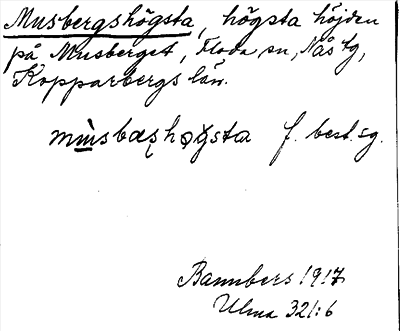 Musbergshögsta, högsta höjden
på Musberget, Floda sn, Nås tg,
Kopparbergs län.
mùsbæʂhøgsta f. best. sg.
Bannbers 1917
Ulma 321:6